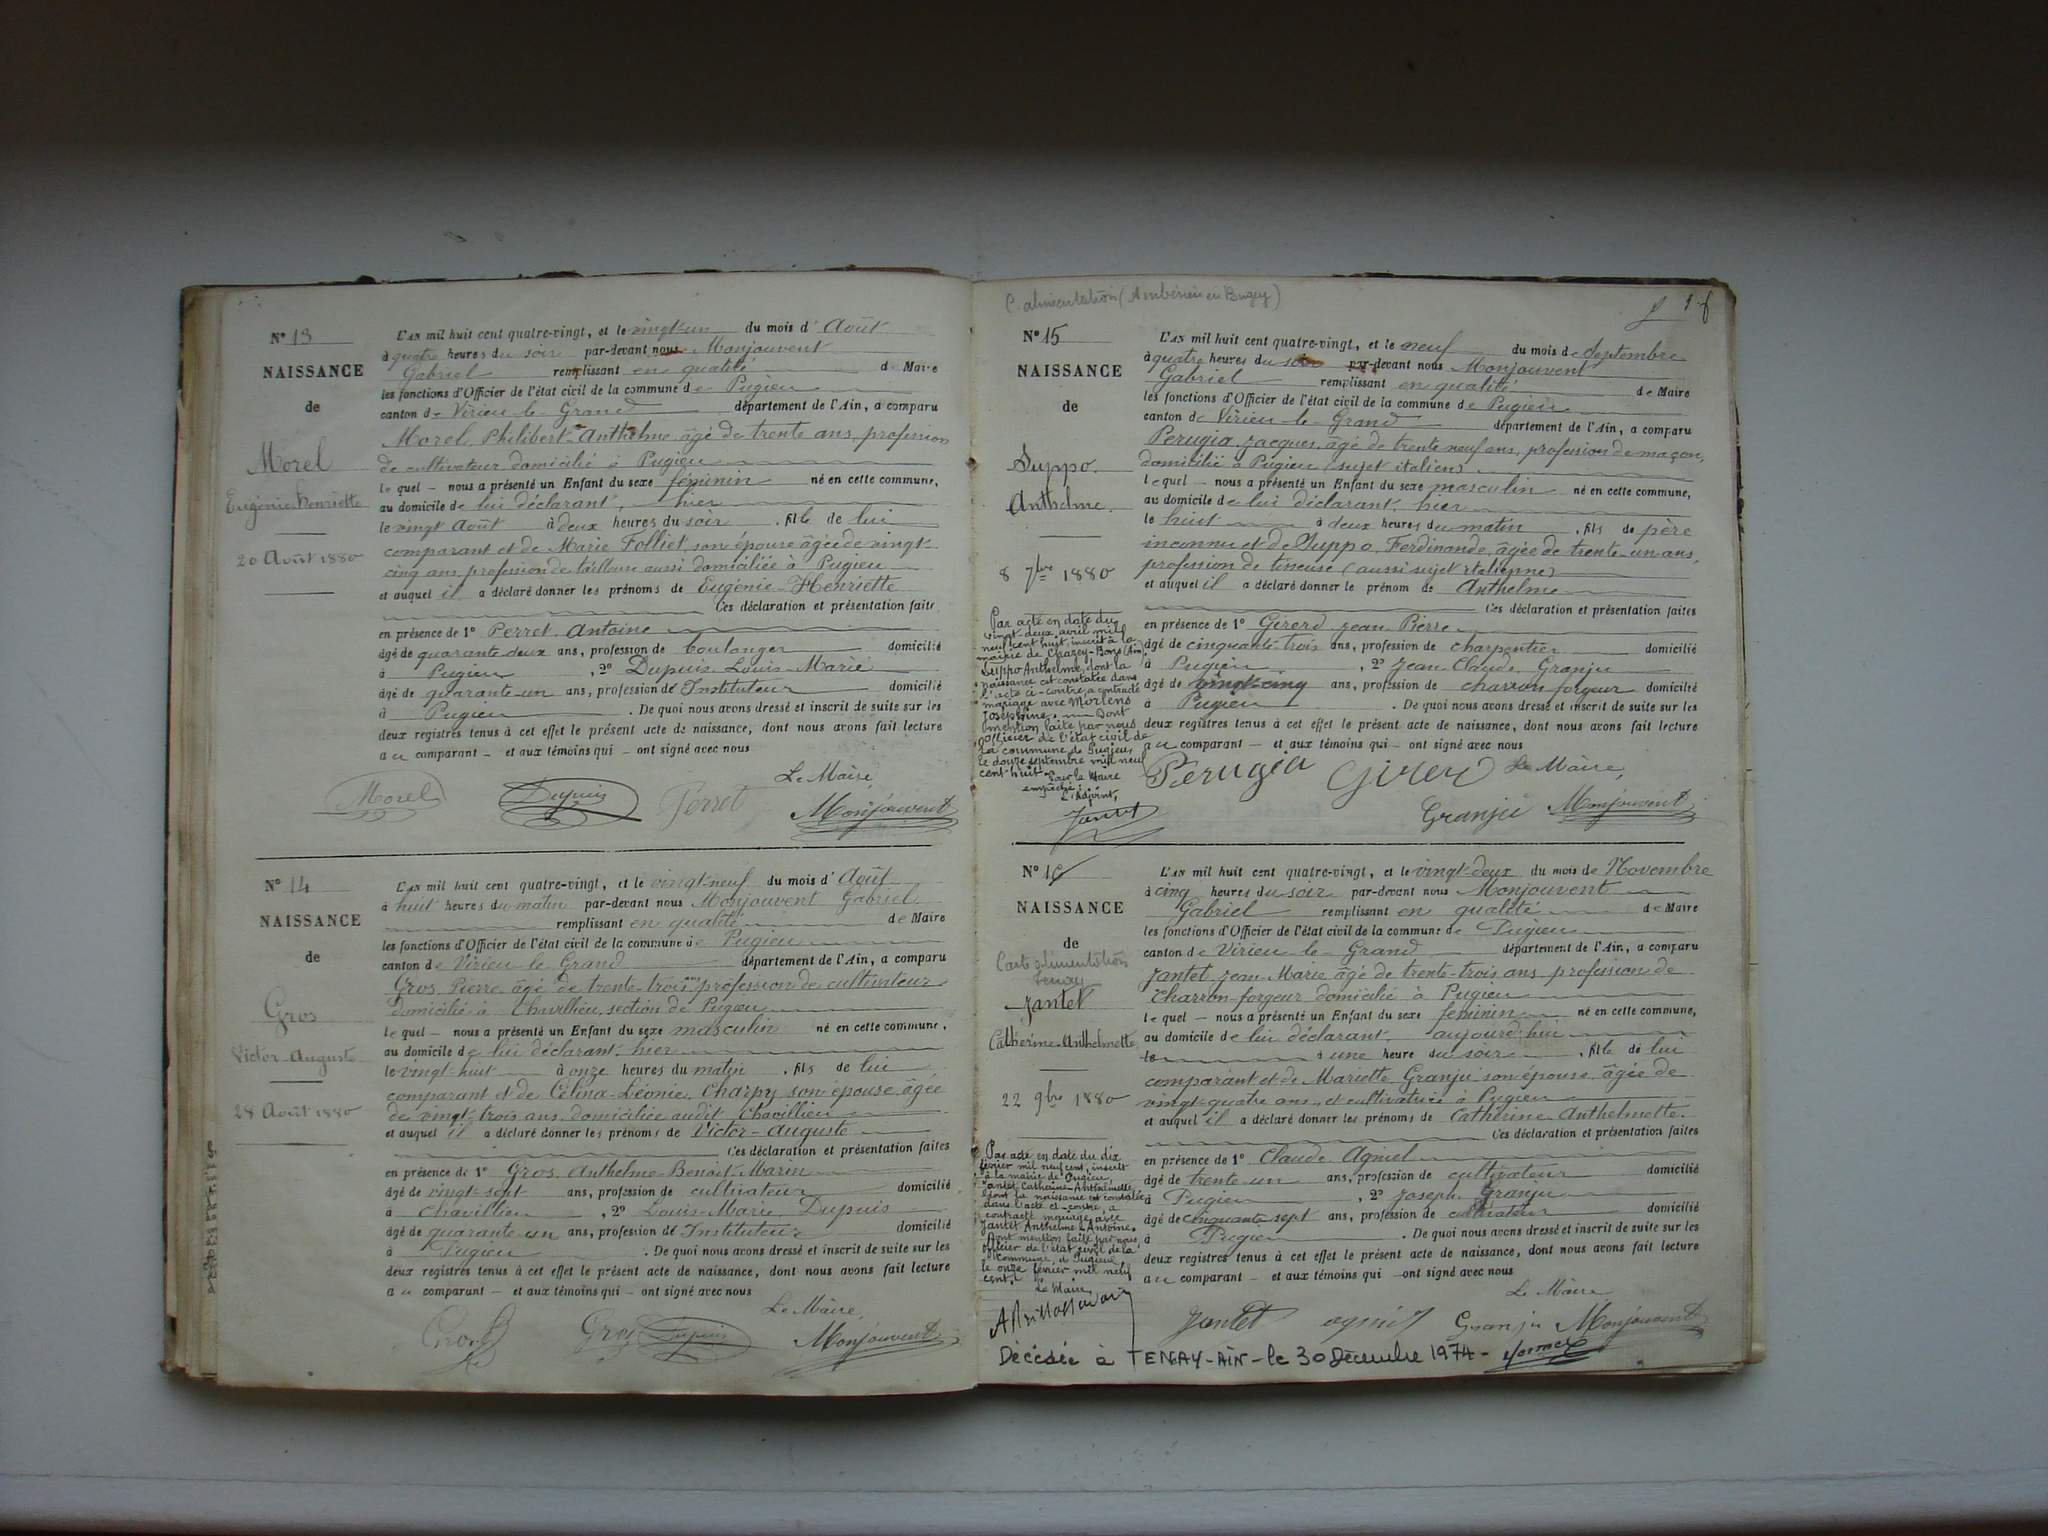 N° 13
NAISSANCE
de
Morel
Eugénie Henriette
20 Août 1880
L'AN mil huit cent quatre-vingt, et le vingt-un du mois d' Août
à quatre heures du soir par-devant nous Monjouvent
Gabriel remplissant en qualité de Maire
les fonctions d'Officier de l'état civil de la commune de Pugieu
canton de Virieu-le-Grand département de l'Ain, a comparu
Morel Philibert-Anthelme âgé de trente ans, profession
de cultivateur domicilié à Pugieu
le quel — nous a présenté un Enfant du sexe féminin né en cette commune,
au domicile de lui déclarant, hier
le vingt Août à deux heures du soir, fille de lui
comparant et de Marie Folliet, son épouse âgée de vingt-
cinq ans, profession de tailleuse aussi domiciliée à Pugieu
et auquel il a déclaré donner les prénoms de Eugénie-Henriette
Ces déclaration et présentation faites
en présence de 1° Perret Antoine
âgé de quarante deux ans, profession de boulanger domicilié
à Pugieu, 2° Dupuis Louis-Marie
âgé de quarante-un ans, profession de Instituteur domicilié
à Pugieu. De quoi nous avons dressé et inscrit de suite sur les
deux registres tenus à cet effet le présent acte de naissance, dont nous avons fait lecture
au comparant — et aux témoins qui — ont signé avec nous
Le Maire,
Morel Dupuis Perret Monjouvent
N° 14
NAISSANCE
de
Gros
Victor-Auguste
28 Août 1880
L'AN mil huit cent quatre-vingt, et le vingt-neuf du mois d' Août
à huit heures du matin par-devant nous Monjouvent Gabriel
remplissant en qualité de Maire
les fonctions d'Officier de l'état civil de la commune de Pugieu
canton de Virieu-le-Grand département de l'Ain, a comparu
Gros Pierre âgé de trente-trois ans profession de cultivateur
domicilié à Chavillieu section de Pugieu
le quel — nous a présenté un Enfant du sexe masculin né en cette commune,
au domicile de lui déclarant, hier
le vingt-huit à onze heures du matin, fils de lui
comparant et de Célina-Léonie Charpy son épouse âgée
de vingt-trois ans, domiciliée audit Chavillieu
et auquel il a déclaré donner les prénoms de Victor-Auguste
Ces déclaration et présentation faites
en présence de 1° Gros Anthelme-Benoit-Marin
âgé de vingt-sept ans, profession de cultivateur domicilié
à Chavillieu, 2° Louis-Marie Dupuis
âgé de quarante-un ans, profession de Instituteur domicilié
à Pugieu. De quoi nous avons dressé et inscrit de suite sur les
deux registres tenus à cet effet le présent acte de naissance, dont nous avons fait lecture
au comparant — et aux témoins qui — ont signé avec nous
Le Maire,
Gros Gros Dupuis Monjouvent
C. alimentation (Ambérieu en Bugey)
N° 15
NAISSANCE
de
Suppo
Anthelme
8 7bre 1880
Par acte en date du
vingt-deux avril mil
neuf cent huit, inscrit à la
mairie de Chazey-Bons (Ain),
Suppo Anthelme, dont la
naissance est constatée dans
l'acte ci-contre, a contracté
mariage avec Mortens
Joséphine. Dont
mention faite par nous
officier de l'état civil de
la commune de Pugieu,
le douze septembre mil neuf
cent huit.
Pour le Maire
empêché:
L'Adjoint,
Jantet
L'AN mil huit cent quatre-vingt, et le neuf du mois de Septembre
à quatre heures du soir par-devant nous Monjouvent
Gabriel remplissant en qualité de Maire
les fonctions d'Officier de l'état civil de la commune de Pugieu
canton de Virieu-le-Grand département de l'Ain, a comparu
Perugia Jacques, âgé de trente neuf ans, profession de maçon,
domicilié à Pugieu (sujet italien)
le quel — nous a présenté un Enfant du sexe masculin né en cette commune,
au domicile de lui déclarant, hier
le huit à deux heures du matin, fils de père
inconnu et de Suppo Ferdinande, âgée de trente-un ans,
profession de tisseuse (aussi sujet italienne)
et auquel il a déclaré donner le prénom de Anthelme
Ces déclaration et présentation faites
en présence de 1° Girerd Jean Pierre
âgé de cinquante-trois ans, profession de charpentier domicilié
à Pugieu, 2° Jean-Claude Granju
âgé de vingt-cinq ans, profession de charron-forgeur domicilié
à Pugieu. De quoi nous avons dressé et inscrit de suite sur les
deux registres tenus à cet effet le présent acte de naissance, dont nous avons fait lecture
au comparant — et aux témoins qui — ont signé avec nous
Perugia Girerd Le Maire,
Granju Monjouvent
N° 16
NAISSANCE
de
Carte alimentation
Tenay
Jantet
Catherine-Anthelmette
22 9bre 1880
Par acte en date du dix
février mil neuf cent, inscrit
à la mairie de Pugieu,
Jantet Catherine-Anthelmette
dont la naissance est constatée
dans l'acte ci-contre, a
contracté mariage avec
Jantet Anthelme-Antoine.
Dont mention faite par nous,
officier de l'état civil de la
commune de Pugieu
le onze février mil neuf
cent.
Le Maire,
L'AN mil huit cent quatre-vingt, et le vingt-deux du mois de Novembre
à cinq heures du soir par-devant nous Monjouvent
Gabriel remplissant en qualité de Maire
les fonctions d'Officier de l'état civil de la commune de Pugieu
canton de Virieu-le-Grand département de l'Ain, a comparu
Jantet Jean-Marie âgé de trente-trois ans profession de
charron-forgeur domicilié à Pugieu
le quel — nous a présenté un Enfant du sexe féminin né en cette commune,
au domicile de lui déclarant, aujourd'hui
le à une heure du soir, fille de lui
comparant et de Mariette Granju son épouse âgée de
vingt-quatre ans, et cultivatrice à Pugieu
et auquel il a déclaré donner les prénoms de Catherine Anthelmette.
Ces déclaration et présentation faites
en présence de 1° Claude Agniel
âgé de trente-un ans, profession de cultivateur domicilié
à Pugieu, 2° Joseph Granju
âgé de cinquante-sept ans, profession de cultivateur domicilié
à Pugieu. De quoi nous avons dressé et inscrit de suite sur les
deux registres tenus à cet effet le présent acte de naissance, dont nous avons fait lecture
au comparant — et aux témoins qui — ont signé avec nous
Le Maire
Jantet Granju Monjouvent
Décédée à TENAY-AIN-le 30 Décembre 1974-